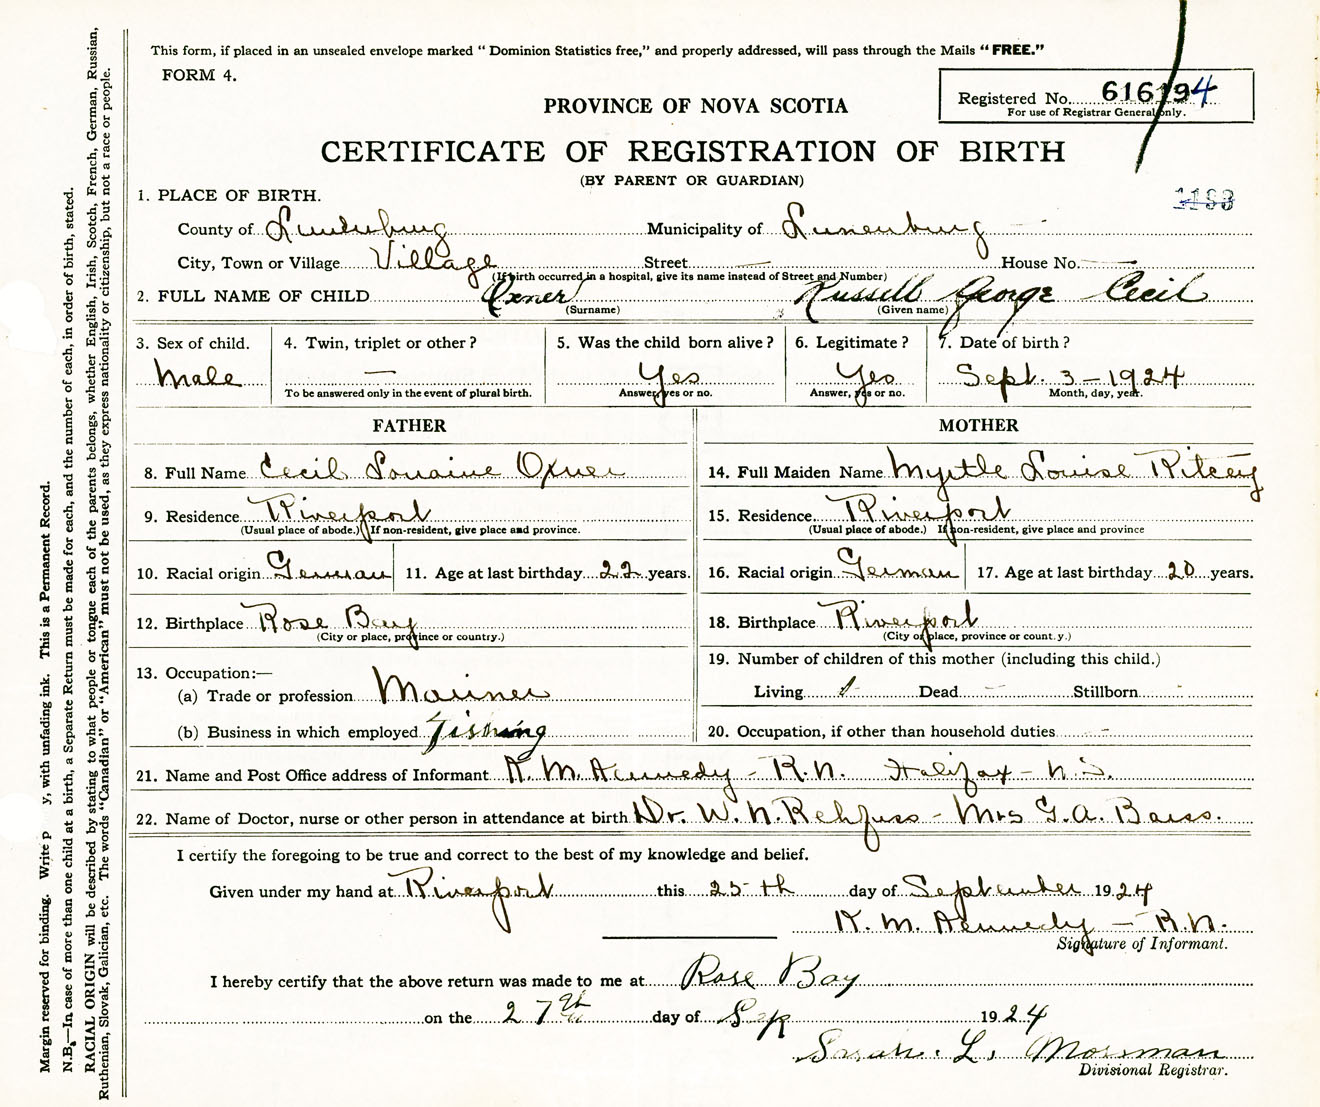 This form, if placed in an unsealed envelope marked “ Dominion Statistics free,” and properly addressed, will pass through the Mails “ FREE.”
FORM 4.
Registered No. 616194
For use of Registrar General only.
PROVINCE OF NOVA SCOTIA
CERTIFICATE OF REGISTRATION OF BIRTH
(BY PARENT OR GUARDIAN)
1193
1. PLACE OF BIRTH.
County of Lunenburg Municipality of Lunenburg
City, Town or Village Village Street — House No. —
(If birth occurred in a hospital, give its name instead of Street and Number)
2. FULL NAME OF CHILD Oxner Russell George Cecil
(Surname) (Given name)
3. Sex of child. 4. Twin, triplet or other ? 5. Was the child born alive ? 6. Legitimate ? 7. Date of birth ?
Male — Yes Yes Sept. 3 – 1924
To be answered only in the event of plural birth. Answer, yes or no. Answer, yes or no. Month, day, year.
FATHER MOTHER
8. Full Name Cecil Loraine Oxner 14. Full Maiden Name Myrtle Louise Ritcey
9. Residence Riverport 15. Residence Riverport
(Usual place of abode.) If non-resident, give place and province. (Usual place of abode.) If non-resident, give place and province
10. Racial origin German 11. Age at last birthday 22 years. 16. Racial origin German 17. Age at last birthday 20 years.
12. Birthplace Rose Bay 18. Birthplace Riverport
(City or place, province or country.) (City or place, province or count.y.)
13. Occupation:— 19. Number of children of this mother (including this child.)
(a) Trade or profession Mariner Living 1 Dead – Stillborn -
(b) Business in which employed Fishing 20. Occupation, if other than household duties –
21. Name and Post Office address of Informant K. M. Kennedy - R.N. Halifax - N.S.
22. Name of Doctor, nurse or other person in attendance at birth Dr. W. N. Rehfuss - Mrs G. A.
I certify the foregoing to be true and correct to the best of my knowledge and belief.
Given under my hand at Riverport this 25th day of September 1924
K. M. Kennedy — R.N.
Signature of Informant.
I hereby certify that the above return was made to me at Rose Bay
on the 27th day of Sep 1924
Sarah. L. Mossman
Divisional Registrar.
Margin reserved for binding. Write p y, with unfading ink. This is a Permanent Record.
N.B.—In case of more than one child at a birth, a Separate Return must be made for each, and the number of each, in order of birth, stated.
RACIAL ORIGIN will be described by stating to what people or tongue each of the parents belongs, whether English, Irish, Scotch, French, German, Russian,
Ruthenian, Slovak, Galician, etc. The words “Canadian” or “American” must not be used, as they express nationality or citizenship, but not a race or people.